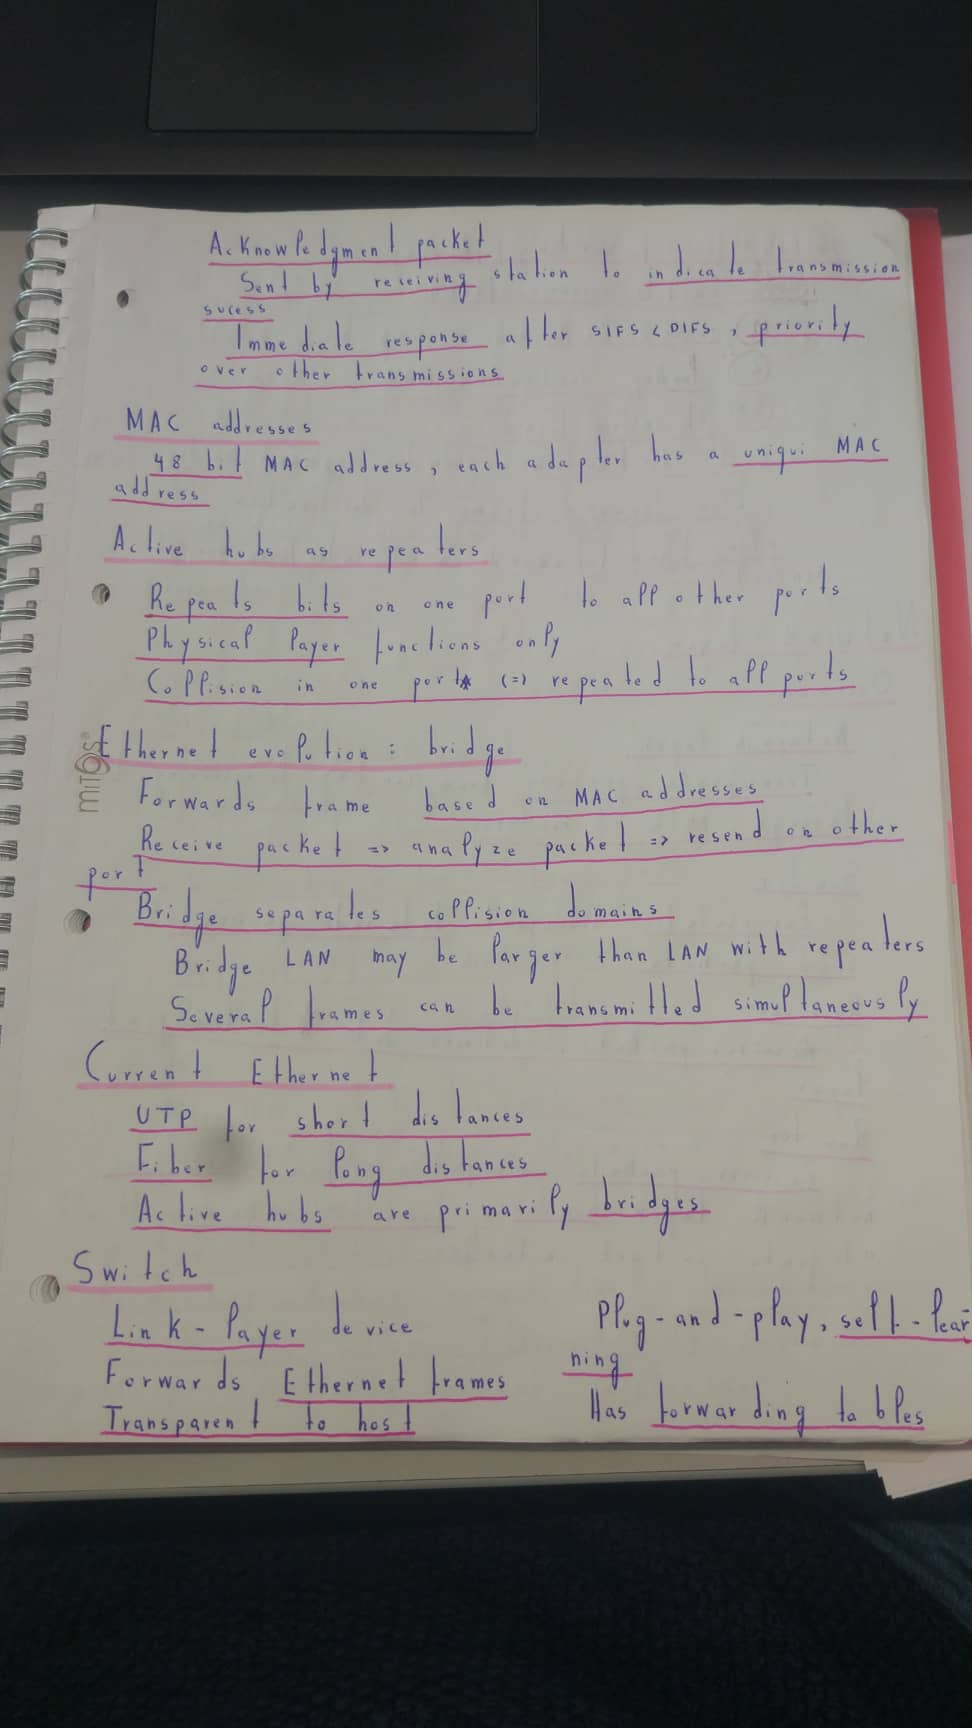 Acknowledgment packet
Sent by receiving station to indicate transmission
sucess
Immediate response after SIFS < DIFS , priority
over other transmissions
MAC addresses
48 bit MAC address , each adapter has a uniqui MAC
address
Active hubs as repeaters
Repeats bits on one port to all other ports
Physical layer functions only
Collision in one port (=) repeated to all ports
mitos®
Ethernet evolution : bridge
Forwards frame based on MAC addresses
Receive packet => analyze packet => resend on other
port
Bridge separates collision domains
Bridge LAN may be larger than LAN with repeaters
Several frames can be transmitted simultaneously
Current Ethernet
UTP for short distances
Fiber for long distances
Active hubs are primarily bridges
Switch
Link-layer device
Forwards Ethernet frames
Transparent to host
Plug-and-play, self-lear
ning
Has forwarding tables